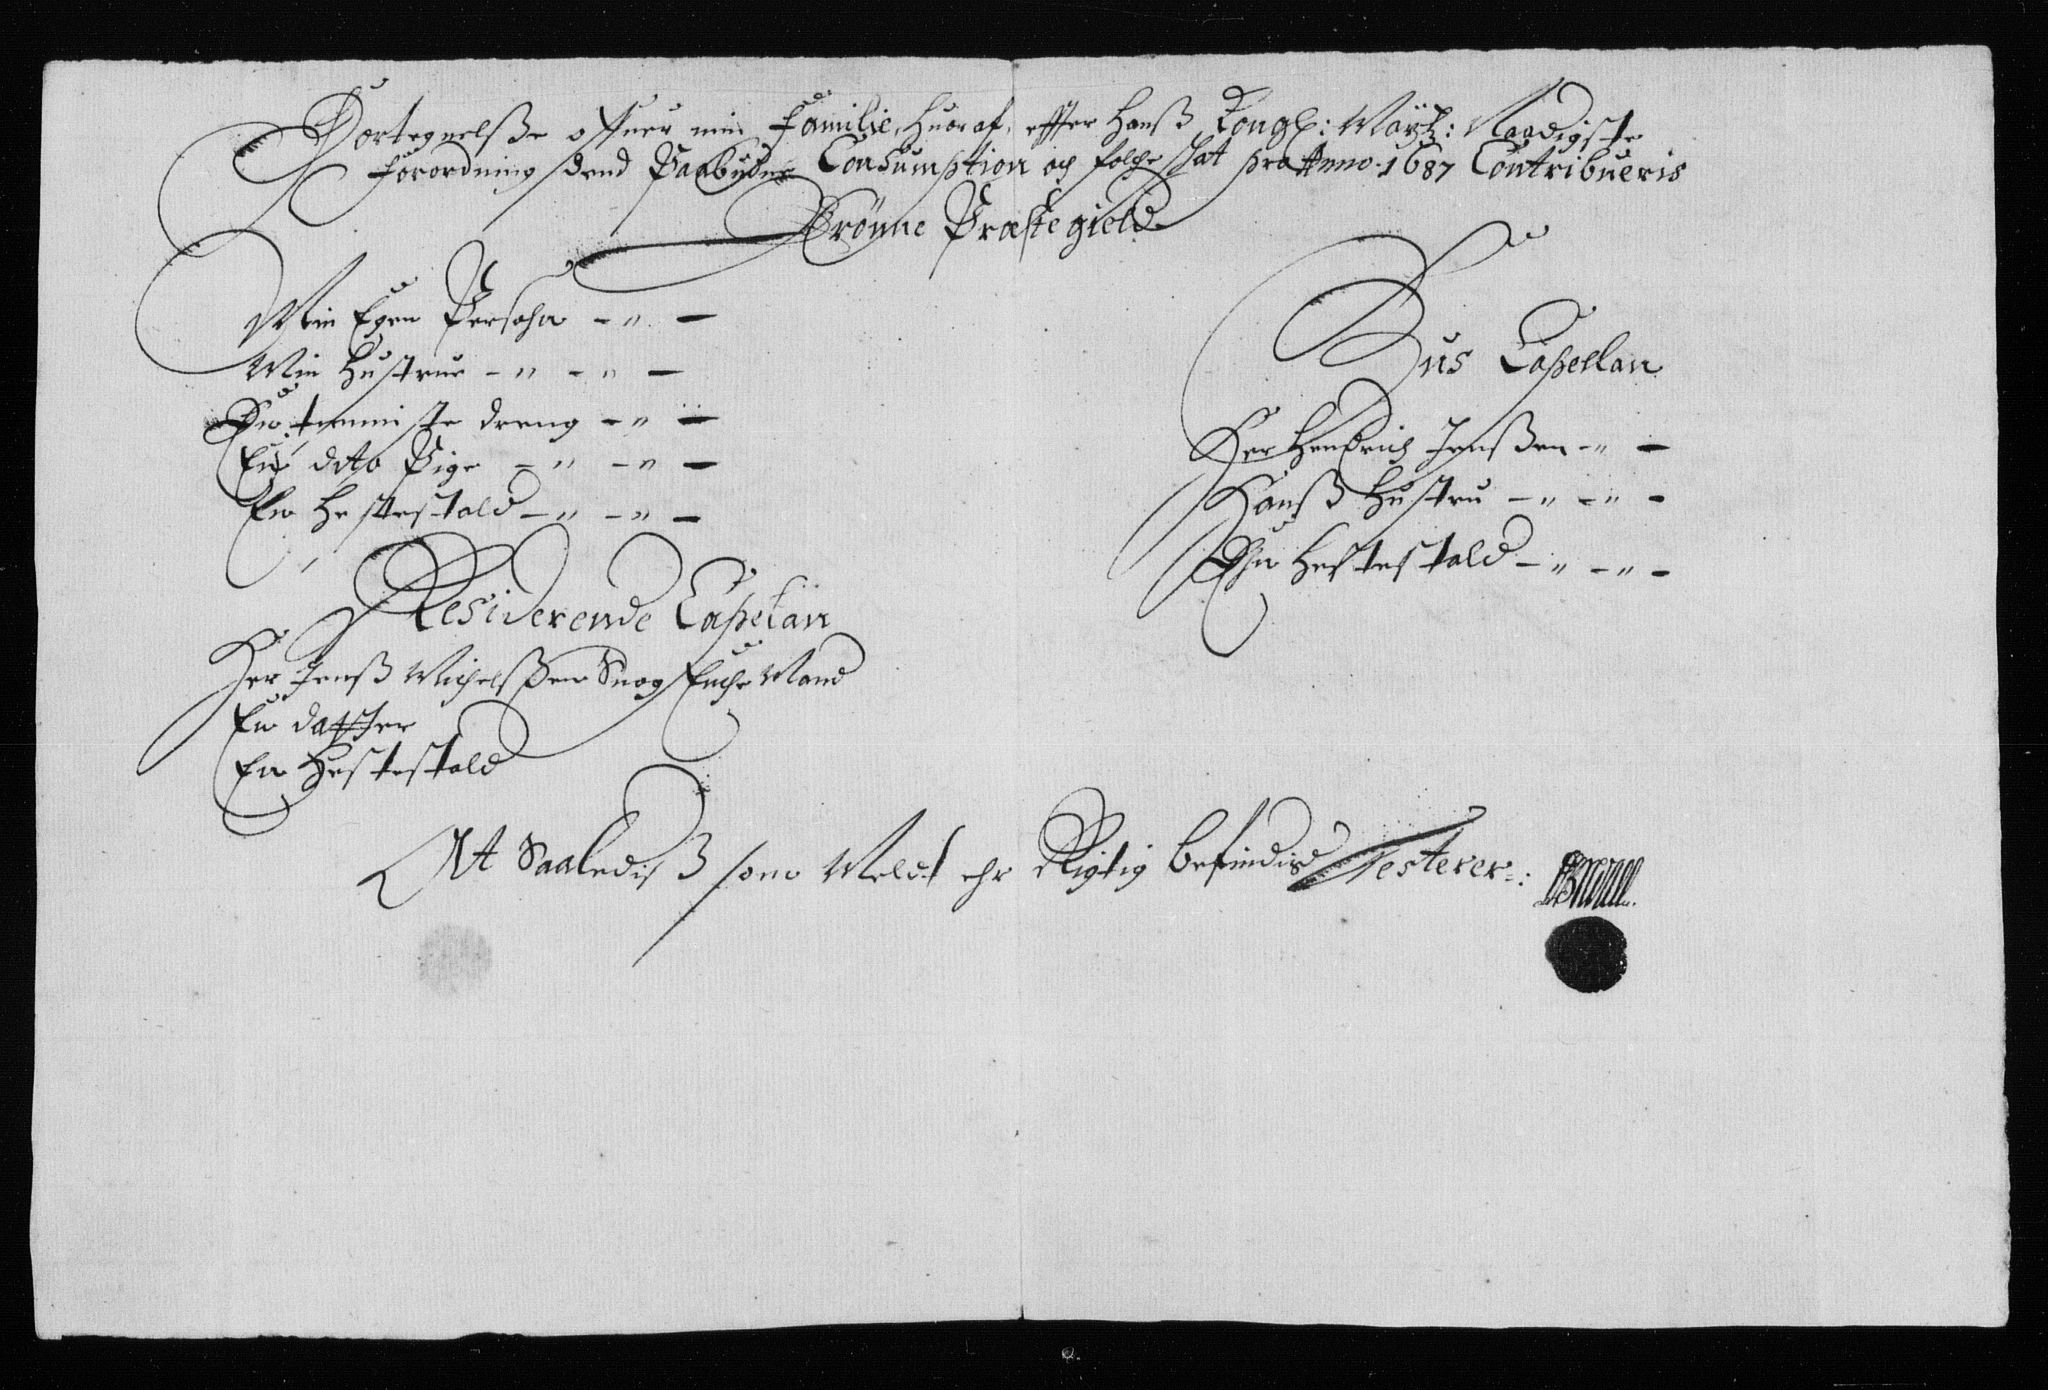 Fortegnelsße offuer min Familie, huoraf, effter Hanß Kongl: Maÿtz: Naadigste
forordning dend Paabudne Consumption och folche schat pro Anno 1687 Contribueris
Brönne Præstegield
Min Egen Persohn - " -
Min Hustrue - " - " -
En tienniste dreng - " -
En dito Pige - " - " -
En Hestestald - " - " -
Residerende Capelan
Her Jenß Michelsßen Snog Enche Mand
En datter
En Hestestald
Hus Capellan
Her Hendrich Jensßen - " -
Hanß Hustru - " - " -
Ehn Hestestald - " - " -
At Saaledisß som Meldt ehr Rigtig befindis Testerer: